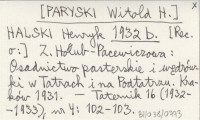 [PARYSKI Witold H.]
HALSKI Henryk 1932 b. [Rec.
o:] Z. Hołub-Pacewiczowa:
Osadnictwo pasterskie i wędrów-
ki w Tatrach i na Podtatrzu. Kra-
ków 1931. — Taternik 16 (1932-
-1933), nr 4: 102-103.